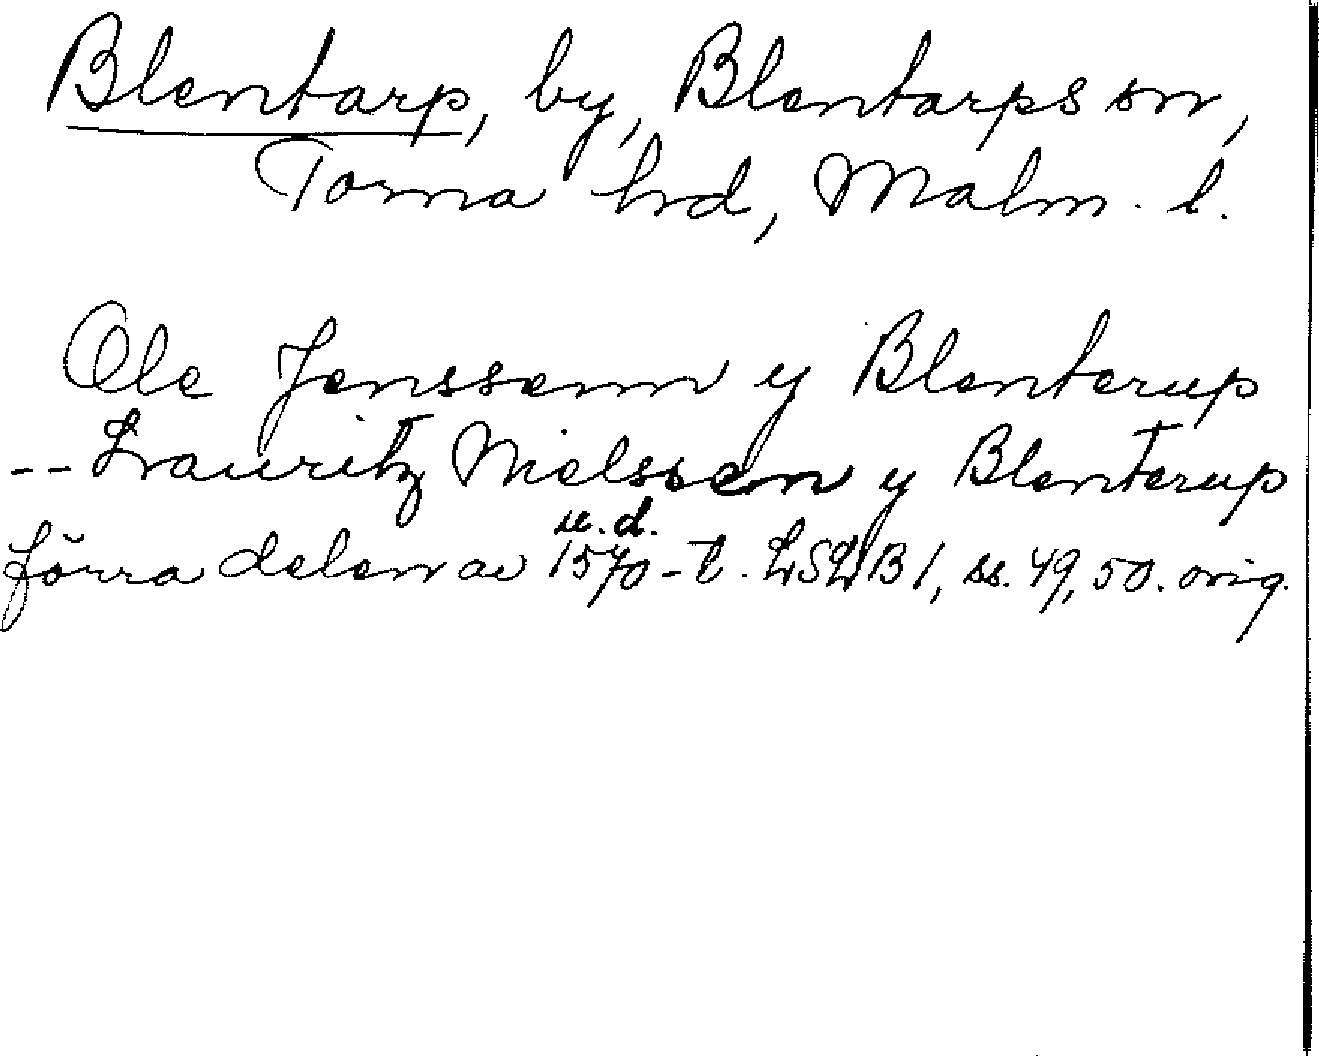 Blentarp, by, Blentarps sn,
Torna hrd, Malm. l.
Ole Jenssenn y Blenterup
-- Lrauritz Nielssen y Blenterup
u. d.
förra delen av 1570-t. LSLB 1, ss. 49, 50. orig.